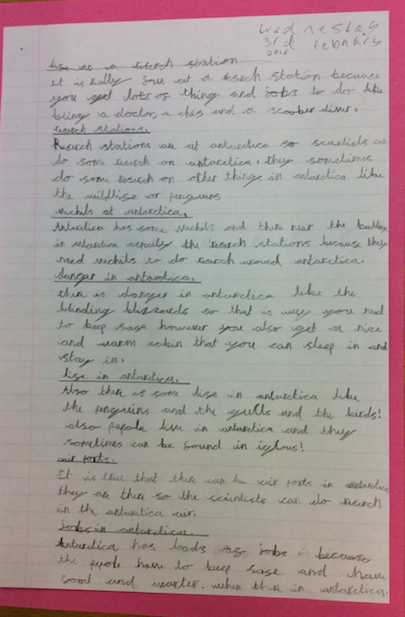 Wednesday
3rd Febuary
2016
life as a reserch station
It is really fun at a reserch station because
you get lots of thing and jobs to do like
being a doctor, a chef and a scoober diver.
reserch stations.
Reserch stations are at antarctica so scientists can
do some reserch on antarctica. They sometimes
do some reserch on other things in antarctica like
the wildlife or penguins
vechils at antarctica.
Antarctica has some vechils and their near the
in antarctica the reserch stations because they
need vechils to do reserch around antarctica.
danger in antarctica.
their is danger in antarctica like the
blinding blizzards so that is why you need
to keep safe however you also get a nice
and warm cabin that you can sleep in and
stay in.
life in antarctica.
Also their is some life in antarctica like
the penguins and the gulls and the birds!
also people live in antarctica and they
sometimes can be found in iglous!
air ports.
It is true that their can be air ports in antarctica
they are their so the scientists can do reserch
in the antarctica air.
jobs in antarctica.
Antarctica has loads of jobs is because
the people have to keep safe and have
food and warter. when their in antarctica.